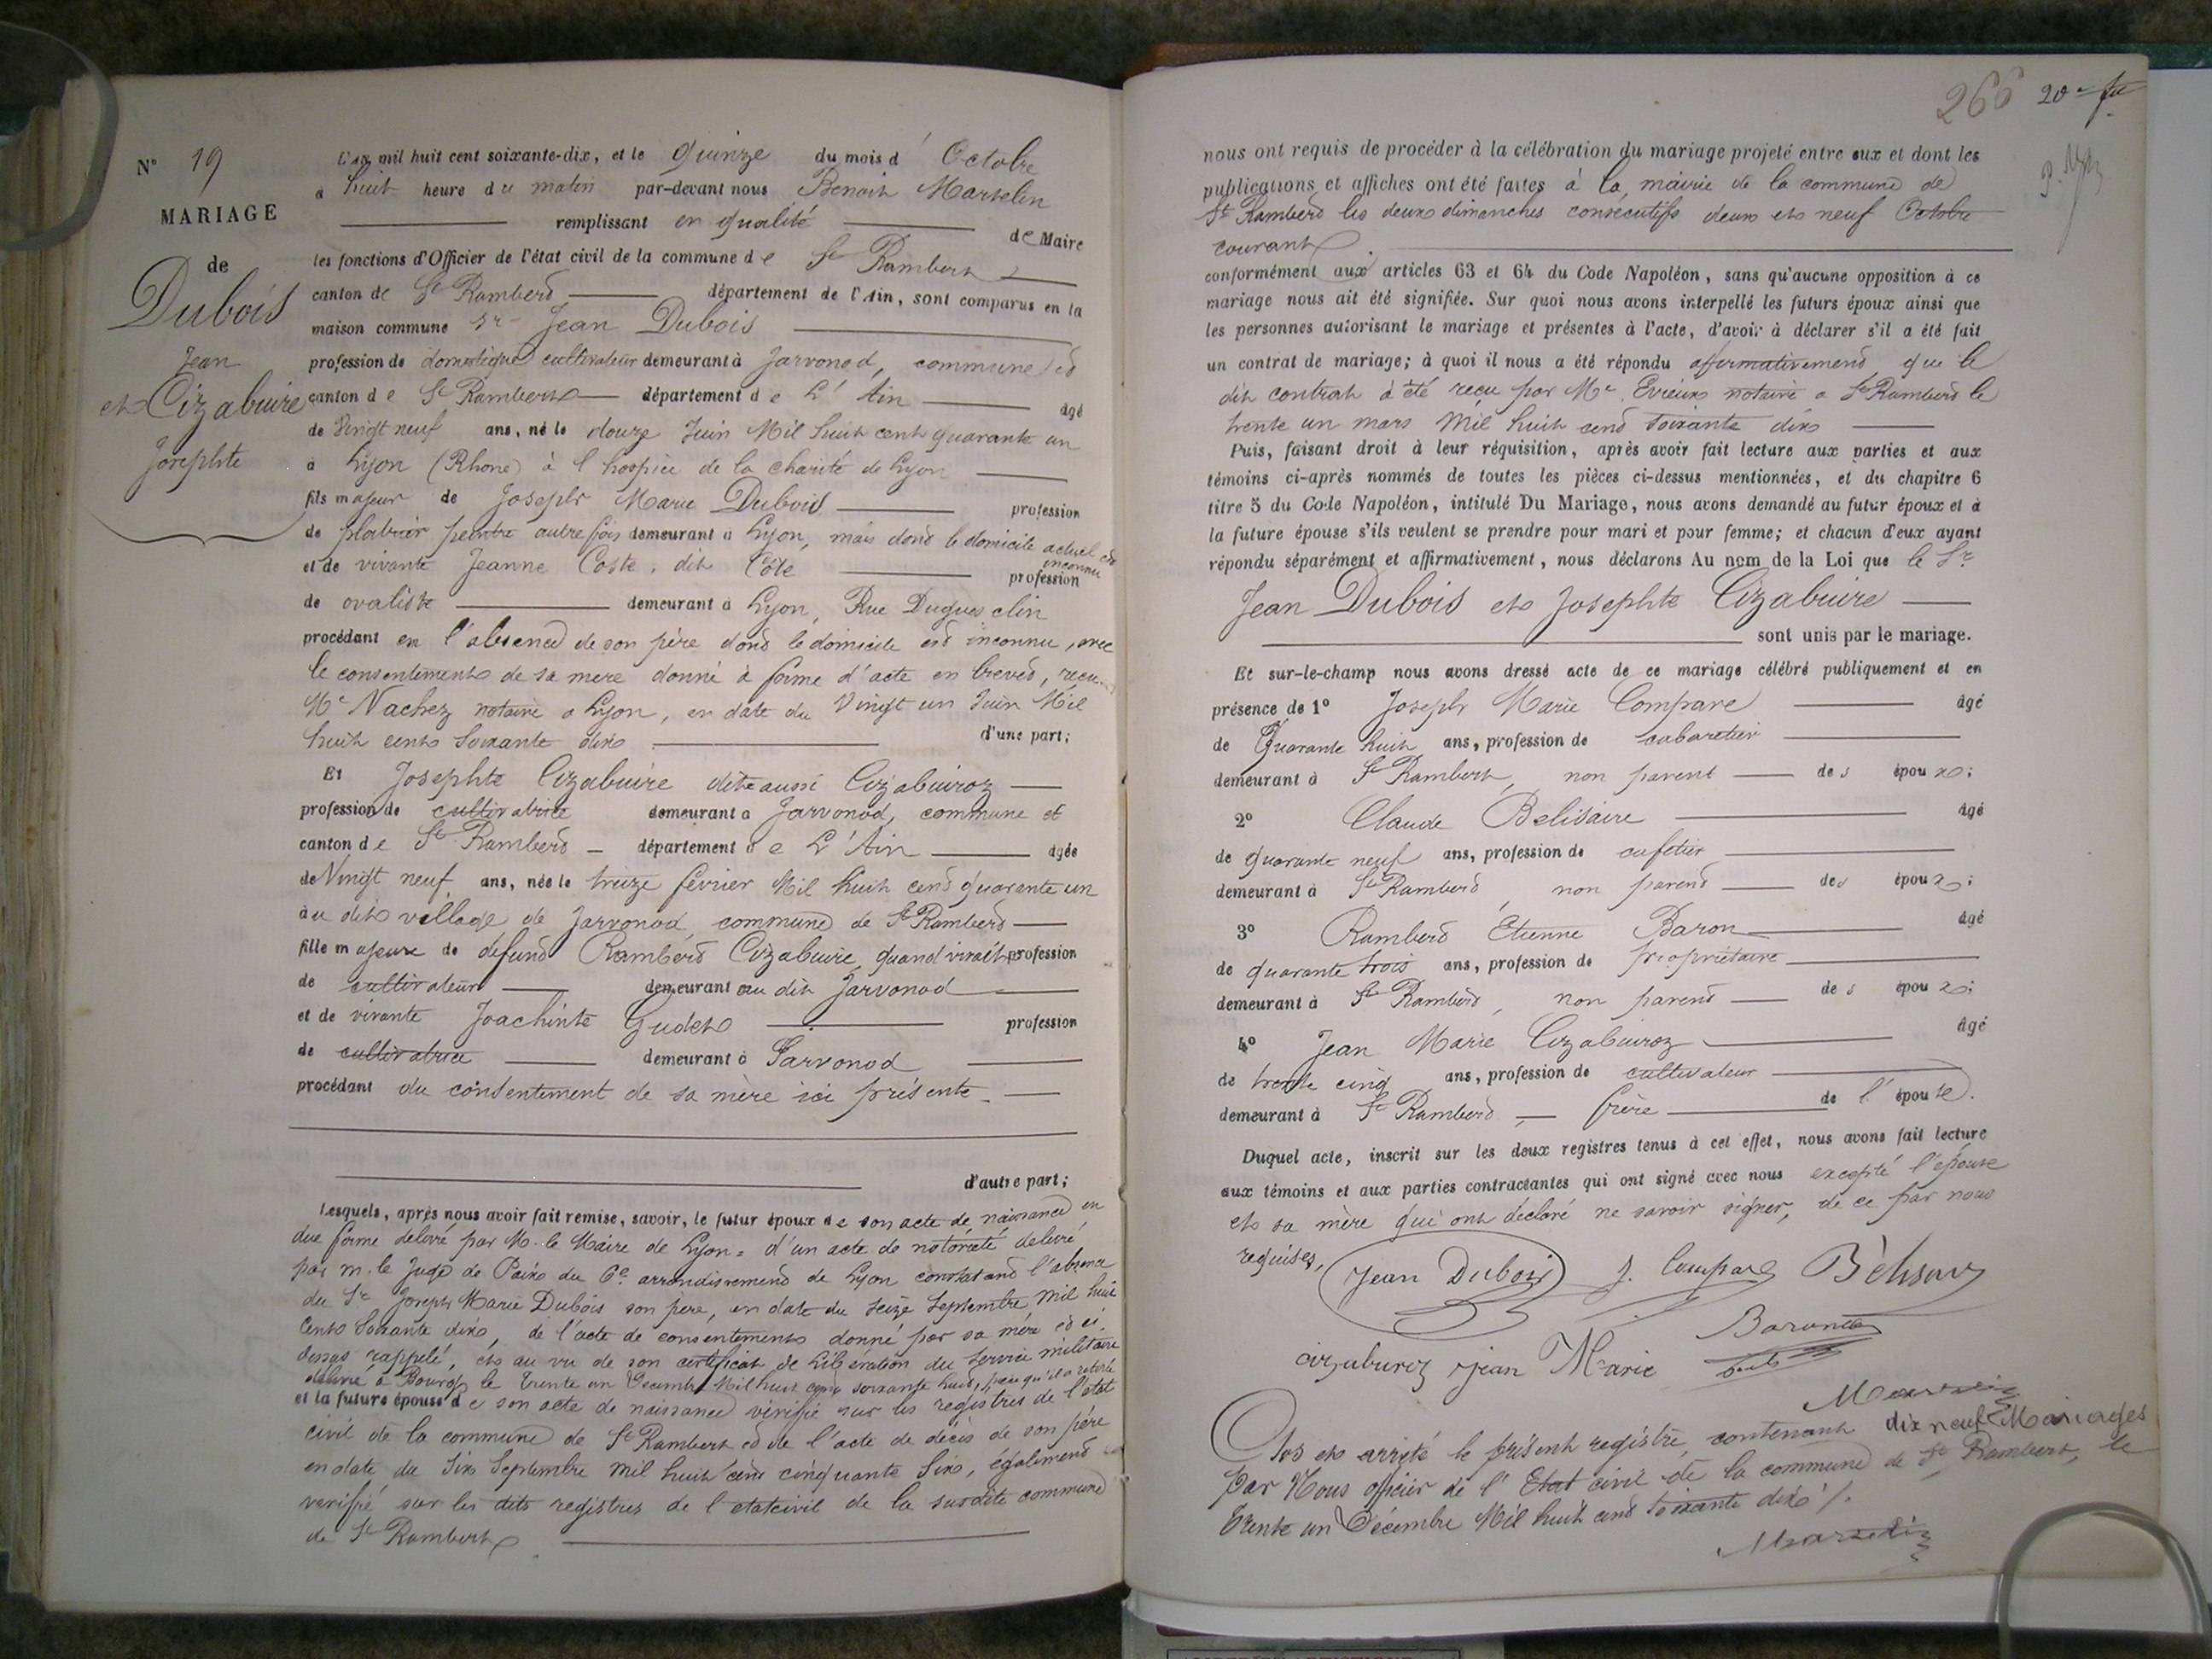 N° 19
MARIAGE
de
Dubois
Jean
et Cizabuire
Josephte
L'an mil huit cent soixante-dix, et le quinze du mois d' Octobre
à huit heure du matin par-devant nous Benoit Marselin
remplissant en qualité de Maire
les fonctions d'Officier de l'état civil de la commune de St Rambert
canton de St Rambert département de l'Ain, sont comparus en la
maison commune Sr Jean Dubois
profession de domestique cultivateur demeurant à Jarvonod, commune et
canton de St Rambert département de L'Ain âgé
de Vingt neuf ans, né le douze Juin Mil huit cent quarante un
à Lyon (Rhone) à l'hospice de la charité de Lyon
fils majeur de Joseph Marie Dubois profession
de platrier peintre autrefois demeurant à Lyon, mais dont le domicile actuel est inconnu
et de vivante Jeanne Coste, dit Côte profession
de ovaliste demeurant à Lyon, Rue Dugues clin
procédant en l'absence de son père dont le domicile est inconnu, avec
le consentement de sa mere donné à forme d'acte en brevet, reçu
Me Nachez notaire a Lyon, en date du Vingt un Juin Mil
huit cent Soixante dix d'une part;
Et Josephte Cizabuire dite aussi Cizabuiroz
profession de cultivatrice demeurant a Jarvonod, commune et
canton de St Rambert département de L'Ain agée
de Vingt neuf ans, née le treize février Mil huit cent quarante un
au dit village de Jarvonod, commune de St Rambert
fille majeure de défunt Rambert Cizabuire, quand vivait profession
de cultivateur demeurant au dit Jarvonod
et de vivante Joachinte Gudet profession
de cultivatrice demeurant à Jarvonod
procédant du consentement de sa mère ici présente
d'autre part;
Lesquels, après nous avoir fait remise, savoir, le futur époux de son acte de naissance en
due forme delivré par M. le Maire de Lyon = d'un acte de notoriété delivré
par m. le Juge de Paix du 6e arrondissement de Lyon constatant l'absence
du Sr Joseph Marie Dubois son pere, en date du Seize Septembre Mil huit
Cent Soixante dix, de l'acte de consentement donné par sa mére et ci
dessus rappelé, et au vu de son certificat de Libération du Service militaire
délivré à Bourg le trente un Decembre Mil huit cent soixante huit,
et la future épouse de son acte de naissance vérifié sur les registres de l'état
civil de la commune de St Rambert et de l'acte de décès de son père
en date du Six Septembre Mil huit cent cinquante Six, également
verifié sur les dits registres de l'etat civil de la susdite commune
de St Rambert
266 20e fet
nous ont requis de procéder à la célébration du mariage projeté entre eux et dont les
publications et affiches ont été faites à la mairie de la commune de
St Rambert les deux dimanches consécutifs deux et neuf Octobre
courant.
conformément aux articles 63 et 64 du Code Napoléon, sans qu'aucune opposition à ce
mariage nous ait été signifiée. Sur quoi nous avons interpellé les futurs époux ainsi que
les personnes autorisant le mariage et présentes à l'acte, d'avoir à déclarer s'il a été fait
un contrat de mariage; à quoi il nous a été répondu affirmativement que le
dit contrat à été reçu par Me Evieux notaire a St Rambert le
trente un mars Mil huit cent soixante dix
Puis, faisant droit à leur réquisition, après avoir fait lecture aux parties et aux
témoins ci-après nommés de toutes les pièces ci-dessus mentionnées, et du chapitre 6
titre 5 du Code Napoléon, intitulé Du Mariage, nous avons demandé au futur époux et à
la future épouse s'ils veulent se prendre pour mari et pour femme; et chacun d'eux ayant
répondu séparément et affirmativement, nous déclarons Au nom de la Loi que le Sr
Jean Dubois et Josephte Cizabuire
sont unis par le mariage.
Et sur-le-champ nous avons dressé acte de ce mariage célébré publiquement et en
présence de 1° Joseph Marie Compare âgé
de Quarante huit ans, profession de cabaretier
demeurant à St Rambert, non parent des époux;
2° Claude Belisaire âgé
de quarante neuf ans, profession de cafetier
demeurant à St Rambert non parent des époux;
3° Rambert Etienne Baron âgé
de quarante trois ans, profession de propriétaire
demeurant à St Rambert, non parent des époux;
4° Jean Marie Cizabuiroz âgé
de trente cinq ans, profession de cultivateur
demeurant à St Rambert, frère de l'épouse.
Duquel acte, inscrit sur les deux registres tenus à cet effet, nous avons fait lecture
aux témoins et aux parties contractantes qui ont signé avec nous excepté l'épouse
et sa mère qui ont déclaré ne savoir signer, de ce par nous
requises,
Jean Dubois J. Compare Bélisaire
Baron
cizabuiroz jean Marie
Marselin
Clos et arrêté le présent registre, contenant dix neuf Mariages
par Nous officier de l'Etat civil de la commune de St Rambert, le
trente un Décembre Mil huit cent soixante dix /.
Marselin